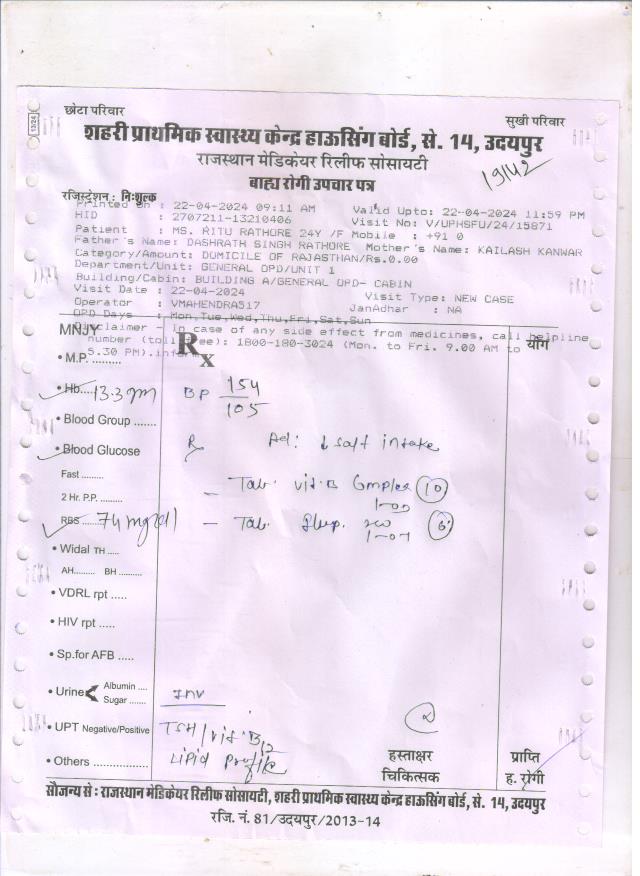 छोटा परिवार
सुखी परिवार
शहरी प्राथमिक स्वास्थ्य केन्द्र हाऊसिंग बोर्ड, से. 14, उदयपुर
राजस्थान मेडिकेयर रिलीफ सोसायटी
19142
बाह्य रोगी उपचार पत्र
रजिस्ट्रेशन : निःशुल्क
Printed On : 22-04-2024 09:11 AM Valid Upto: 22-04-2024 11:59 PM
HID : 2707211-13210406 Visit No: V/UPHSFU/24/15871
Patient : MS. RITU RATHORE 24Y /F Mobile : +91 0
Father's Name: DASHRATH SINGH RATHORE Mother's Name: KAILASH KANWAR
Category/Amount: DOMICILE OF RAJASTHAN/Rs.0.00
Department/Unit: GENERAL OPD/UNIT 1
Building/Cabin: BUILDING A/GENERAL OPD- CABIN
Visit Date : 22-04-2024 Visit Type: NEW CASE
Operator : VMAHENDRA517 JanAdhar : NA
OPD Days : Mon,Tue,Wed,Thu,Fri,Sat,Sun
MNJY Disclaimer - In case of any side effect from medicines, call helpline
number (toll free): 1800-180-3024 (Mon. to Fri. 9.00 AM to
5.30 PM).
योग
Rx
• M.P. .........
• Hb....13.3 gm BP 154/105
• Blood Group .......
• Blood Glucose Rx Ad: ↓ salt intake
Fast .........
- Tab. Vit. B Complex (10)
1-00
2 Hr. P.P. .........
RBS ...... 74 mg/dl - Tab.
• Widal TH .....
AH......... BH ..........
• VDRL rpt .....
• HIV rpt .....
• Sp.for AFB .....
• Urine Albumin ....
Sugar .......
Inv
• UPT Negative/Positive TSH / Vit. B12
• Others .................. Lipid Profile
हस्ताक्षर प्राप्ति
चिकित्सक ह. रोगी
सौजन्य से : राजस्थान मेडिकेयर रिलीफ सोसायटी, शहरी प्राथमिक स्वास्थ्य केन्द्र हाऊसिंग बोर्ड, से. 14, उदयपुर
रजि. नं. 81/उदयपुर/2013-14